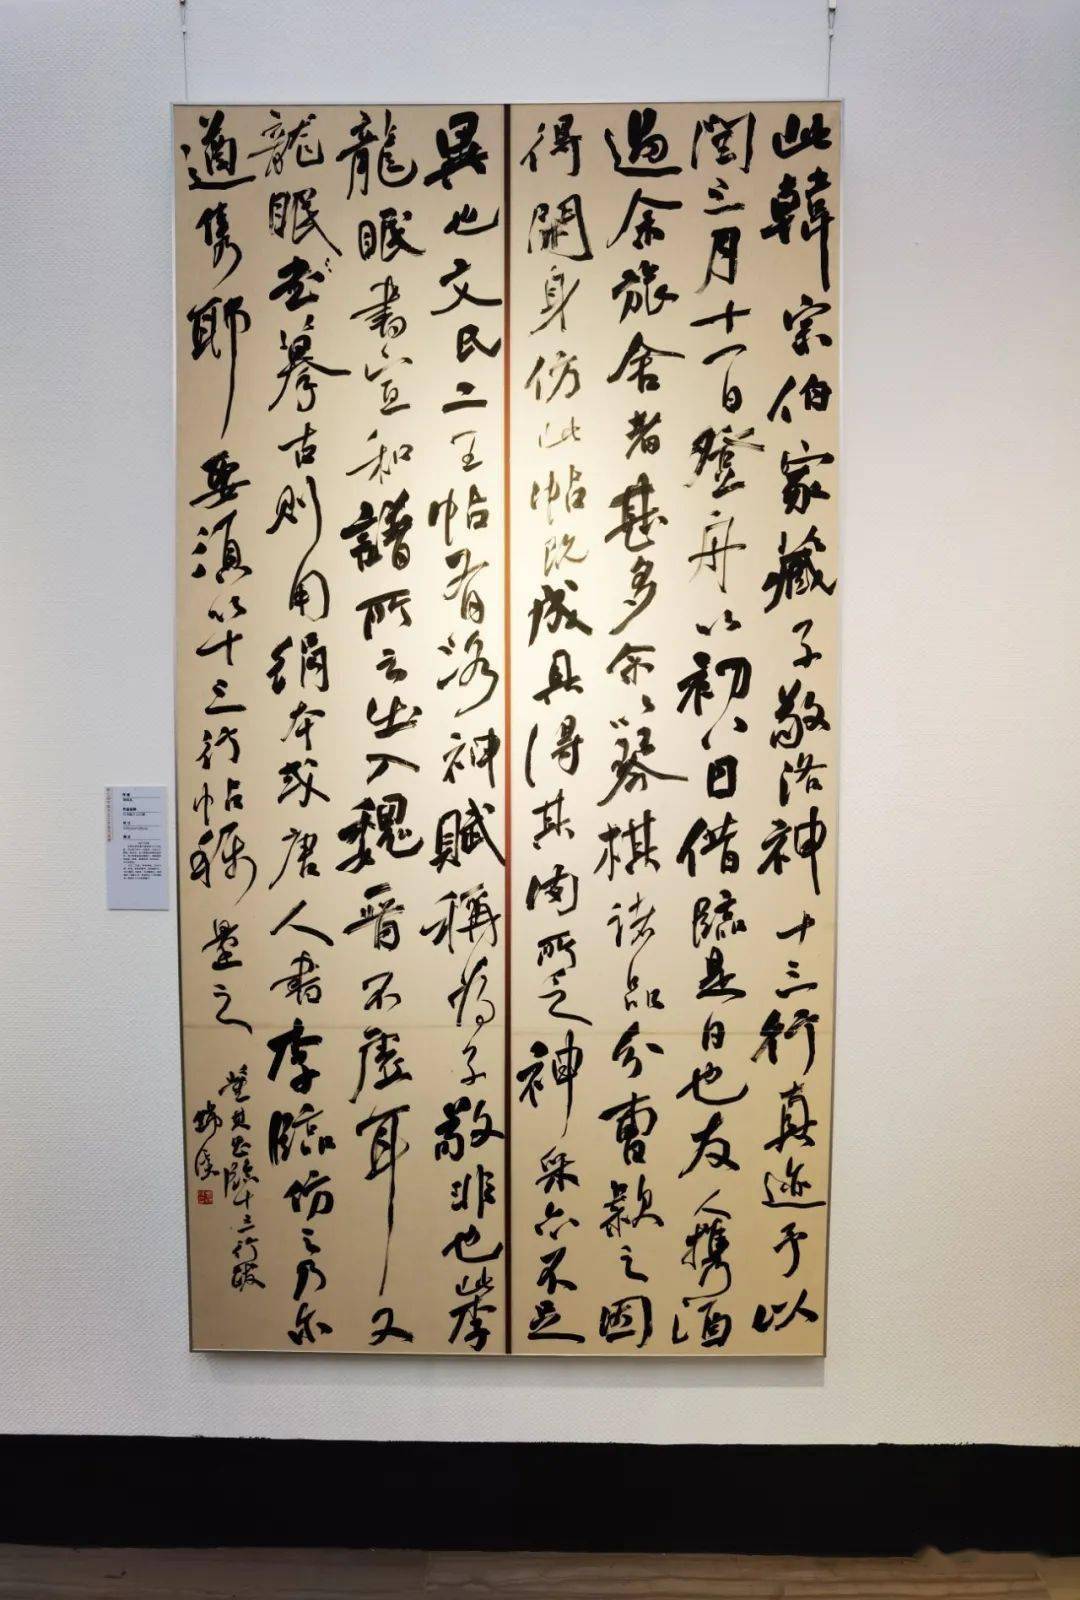 此韓宗伯家藏子敬洛神十三行真迹予以
閏三月十一日登舟以初八日借臨是日也友人携酒
過余旅舍者甚多余以琴棋諸品分曹款之因
得閒身仿此帖既成具得其肉所乏神采亦不足
異也文氏二王帖有洛神賦稱為子敬非也此李
龍眠書宣和譜所云出入魏晋不虛耳又
龍眠書摹古則用絹本或唐人書李臨仿之乃尔
遒雋耶要須以十三行帖稱量之
董其昌臨十三行跋